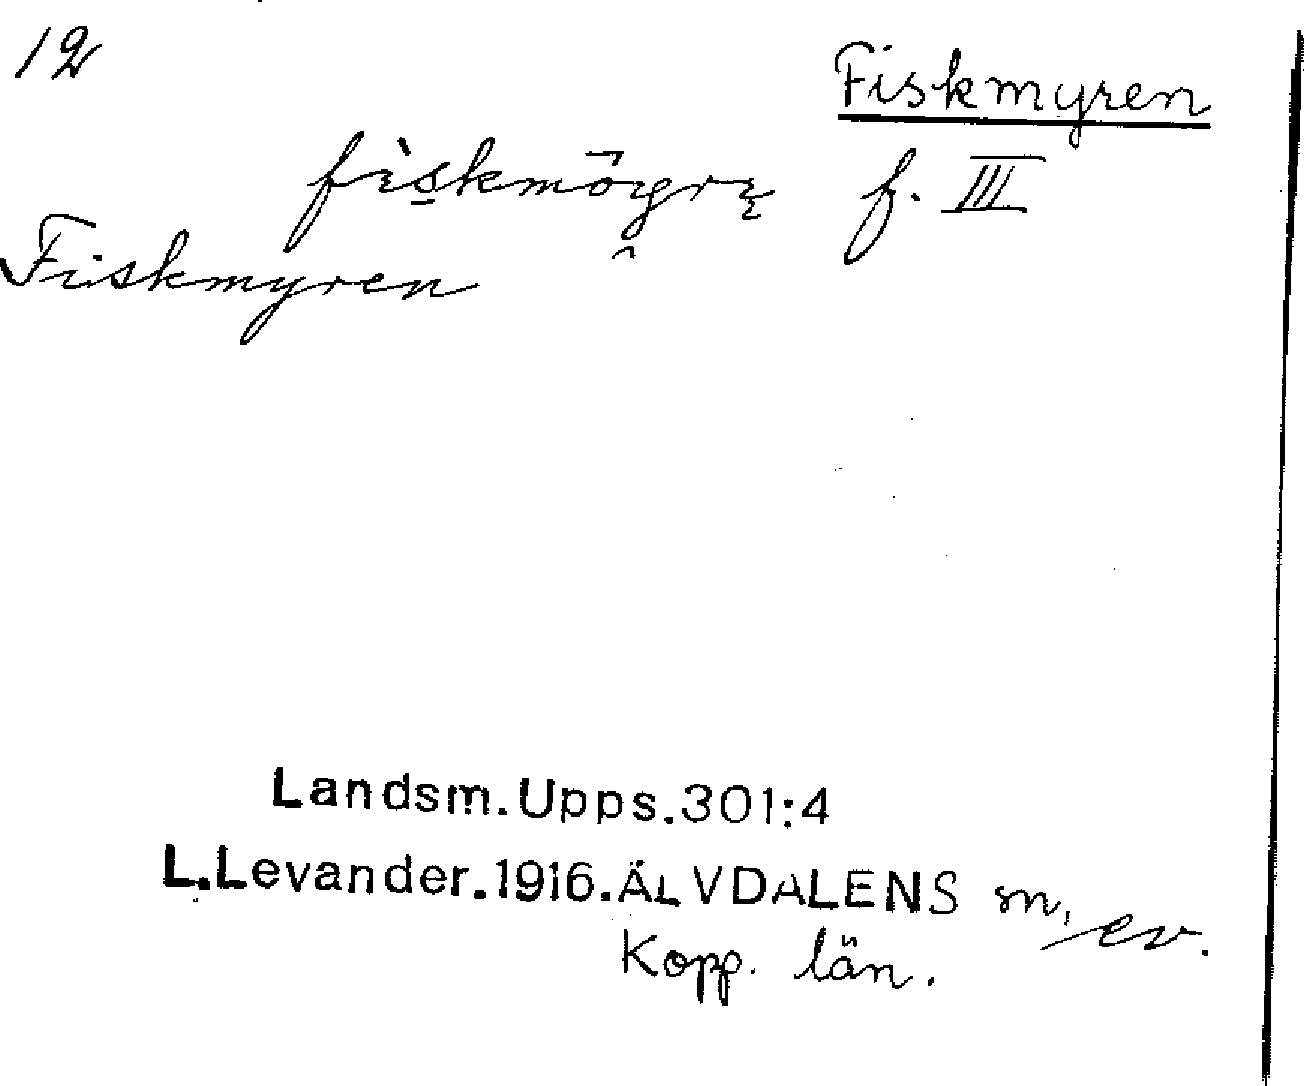 12
Fiskmyren
f. III
Fiskmyren
Landsm. Upps. 301:4
L. Levander. 1916. ÄLVDALENS sn, ev.
Kopp. län.